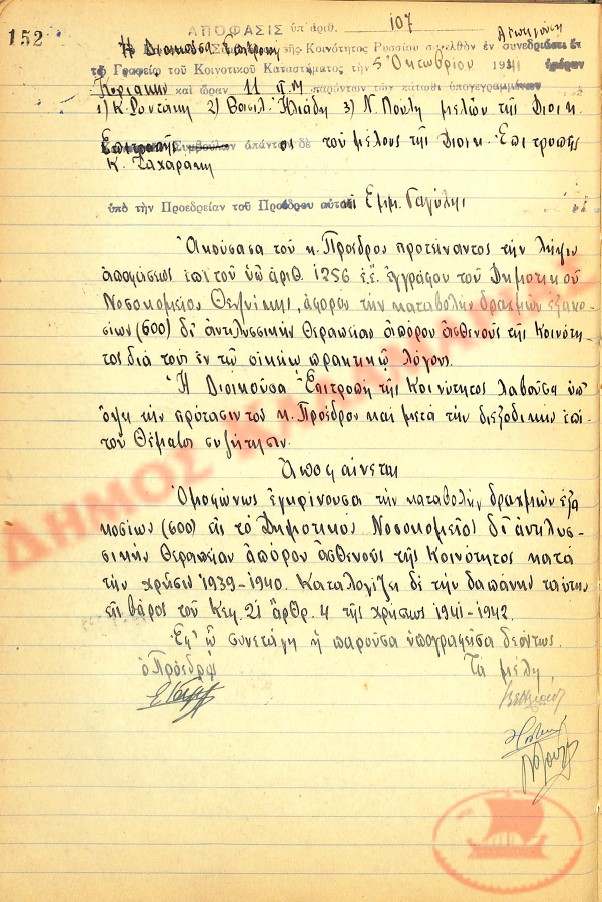 152
ΑΠΟΦΑΣΙΣ ὑπ' ἀριθ. 107
Ἡ Διοικοῦσα Ἐπιτροπὴ τῆς Κοινότητος Ρυσσίου συνελθὸν ἐν συνεδριάσει ἐν
τῷ Γραφείῳ τοῦ Κοινοτικοῦ Καταστήματος τὴν 5 Ὀκτωβρίου 1941 ἡμέραν
Κυριακὴν καὶ ὥραν 11 π.μ παρόντων τῶν κάτωθι ὑπογεγραμμένων
1) Κ. Ροντάκη 2) Βασιλ. Ηλιάδη 3) Ν. Πούλη μελῶν τῆς Διοικ.
Ἐπιτροπῆς Συμβούλων ἀπόντος δὲ τοῦ μέλους τῆς Διοικ. Ἐπιτροπῆς
Κ. Ζαχαράκη
ὑπὸ τὴν Προεδρείαν τοῦ Προέδρου αὐτοῦ Ἐμμ.
Ἀκούσασα τοῦ κ. Προέδρου προτείναντος τὴν λῆψιν
ἀποφάσεως ἐπὶ τοῦ ὑπ' ἀριθ. 1256 ἐ.ἔ. ἐγγράφου τοῦ Δημοτικοῦ
Νοσοκομείου Θεσ/νίκης, ἀφορον τὴν καταβολὴν δραχμῶν ἑξακο-
σίων (600) δι' ἀντιλυσσικὴν θεραπείαν ἀπόρου ἀσθενοῦς τῆς Κοινότη-
τος διὰ τοὺς ἐν τῷ οἰκείῳ πρακτικῷ λόγους.
Ἡ Διοικοῦσα Ἐπιτροπὴ τῆς Κοινότητος λαβοῦσα ὑπ'
ὄψη τὴν πρότασιν τοῦ κ. Προέδρου καὶ μετὰ τὴν διεξοδικὴν ἐπὶ
τοῦ θέματος συζήτησιν.
Ἀποφαίνεται
Ὁμοφώνως ἐγκρίνουσα τὴν καταβολὴν δραχμῶν ἑξα
κοσίων (600) εἰς τὸ Δημοτικὸν Νοσοκομεῖον δι' ἀντιλυσ-
σικὴν θεραπείαν ἀπόρου ἀσθενοῦς τῆς Κοινότητος κατὰ
τὴν χρῆσιν 1939-1940. Καταλογίζει δὲ τὴν δαπάνην ταύτην
εἰς βάρος τοῦ Κεφ. 21 ἄρθρ. 4 τῆς χρήσεως 1941-1942.
Ἐφ' ᾧ συνετάγη ἡ παροῦσα ὑπογραφεῖσα δεόντως.
ὁ Πρόεδρος Τὰ μέλη
ΔΗΜΟΣ ΚΑΛΑΜΑΡΙΑΣ